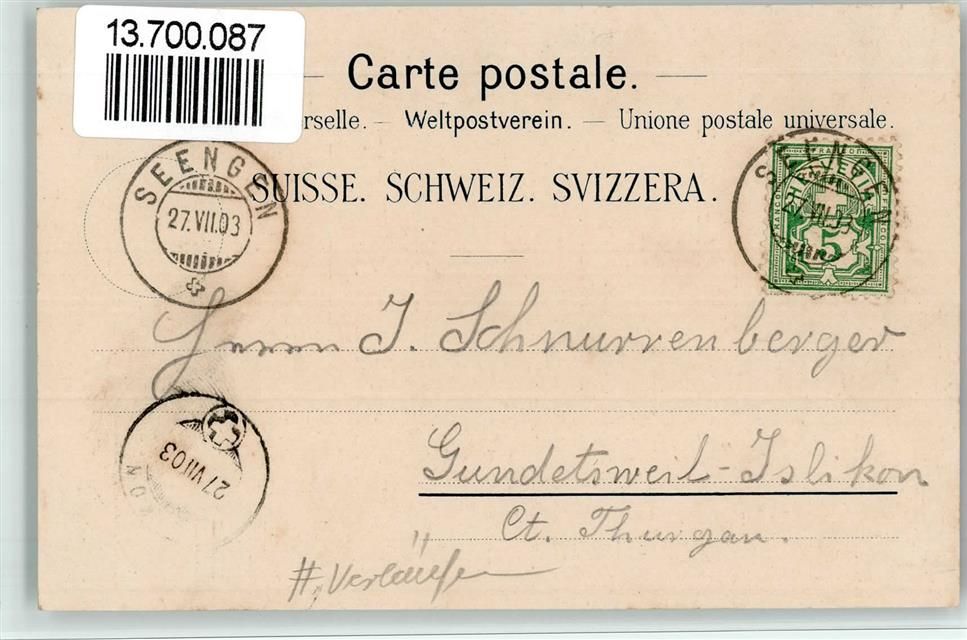 13.700.087
Carte postale.
rselle. — Weltpostverein. — Unione postale universale.
SUISSE. SCHWEIZ. SVIZZERA.
SEENGEN
27.VII.03
SEENGEN
27.VII.03
FRANCO
HELVETIA
5
Herrn J. Schnurrenberger
27 VII 03
Gundetsweil-Islikon
Ct. Thurgau.